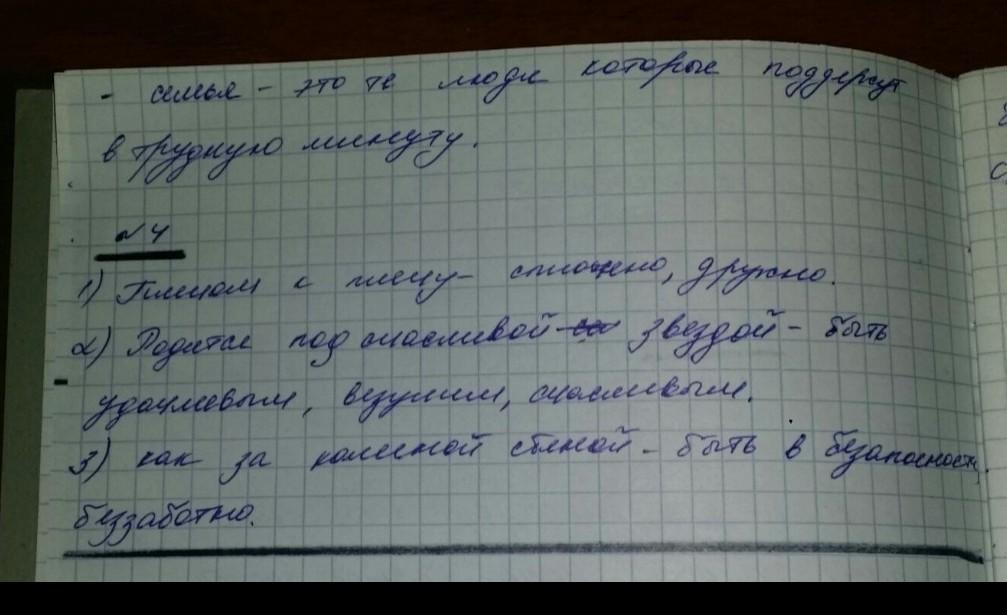 - семья - это те люди которые поддержут
в трудную минуту.
№4
1) Плечом к плечу - сплочено, дружно.
2) Родится под счасливой звездой - быть
удачлевым, везучим, счасливым.
3) как за каменой стеной - быть в безапасности,
беззаботно.